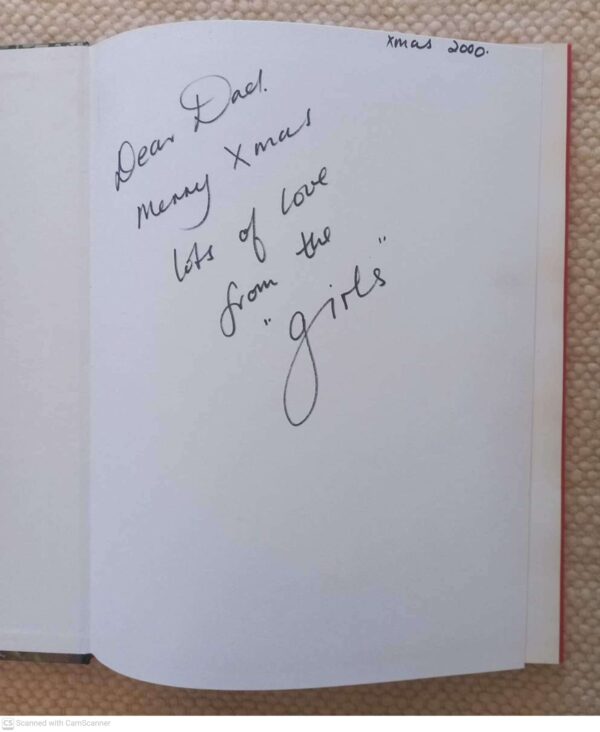 Xmas 2000.
Dear Dad.
Merry Xmas
lots of love
from the
"girls"
CS Scanned with CamScanner